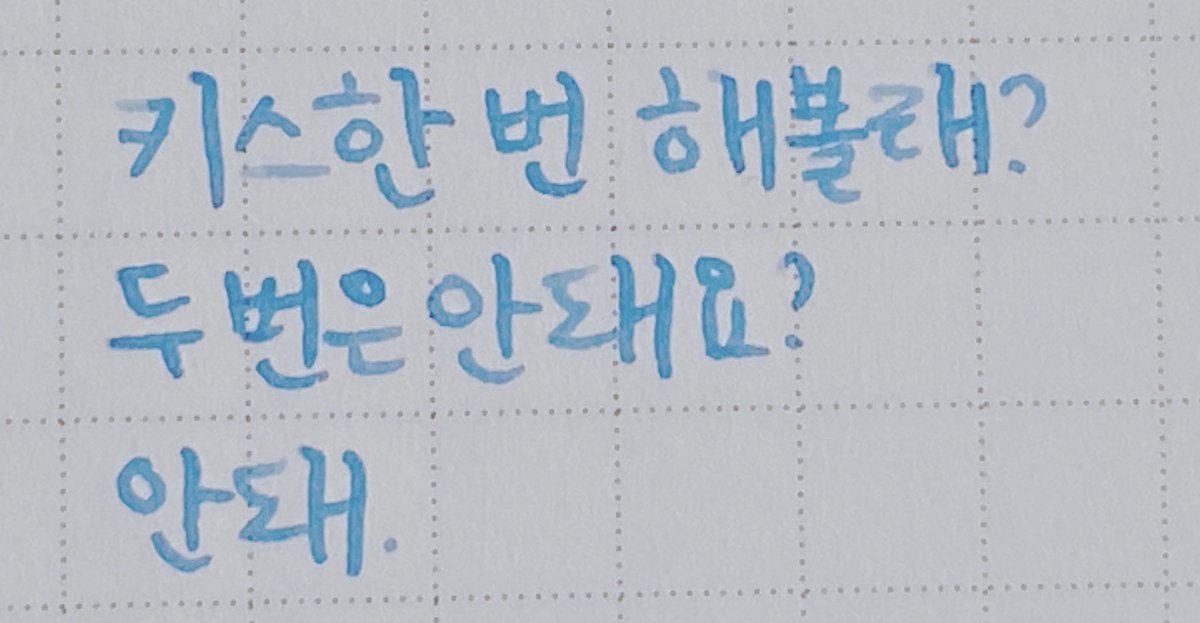 키스한 번 해볼래?
두 번은 안돼요?
안돼.